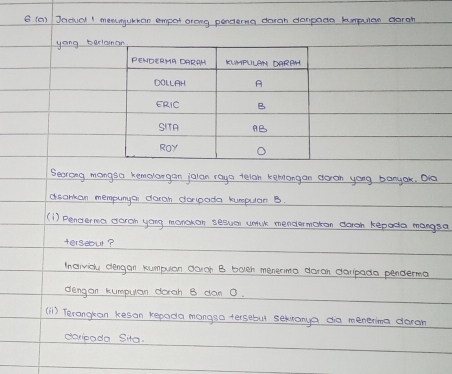 6 (a) Jadual 1 menunjukkan empat orang penderma darah daripada kumpulan darah
yang berlainan
PENDERMA DARAH KUMPULAN DARAH
DOLLAH A
ERIC B
SITA AB
ROY O
Seorang mangsa kemalangan jalan raya telah kehilangan darah yang banyak. Dia
disahkan mempunyai darah daripada kumpulan B.
(i) Penderma darah yang manakah sesuai untuk mendermakan darah kepada mangsa
tersebut?
Individu dengan kumpulan darah B boleh menerima darah daripada penderma
dengan kumpulan darah B dan O.
(ii) Terangkan kesan kepada mangsa tersebut sekiranya dia menerima darah
daripada Sita.